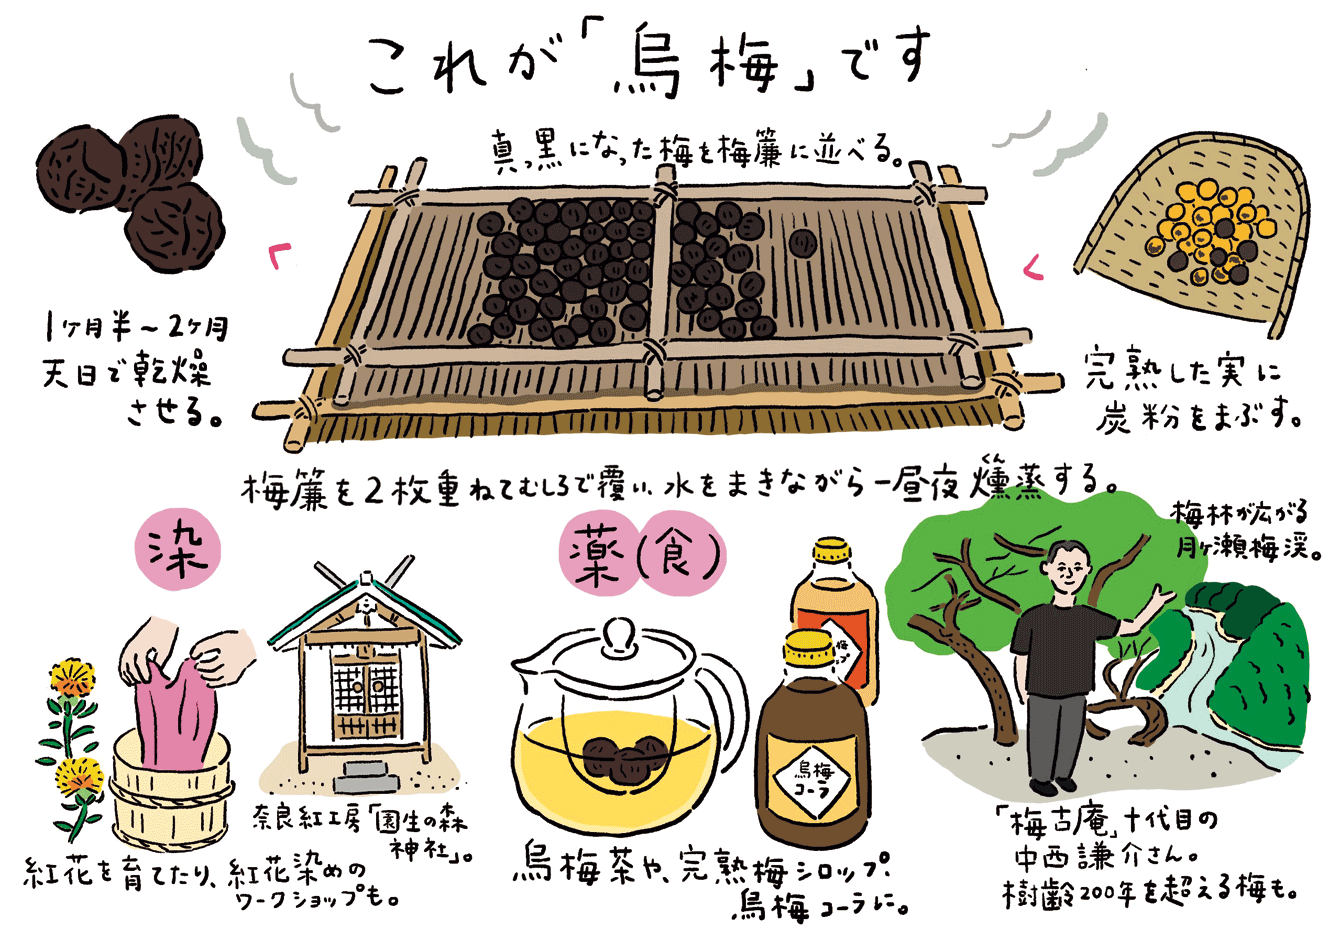 これが「烏梅」です
真っ黒になった梅を梅簾に並べる。
完熟した実に
炭粉をまぶす。
1ヶ月半～2ヶ月
天日で乾燥
させる。
梅簾を2枚重ねてむしろで覆い、水をまきながら一昼夜燻蒸する。
くん
染
奈良紅工房「園生の森
神社」。
紅花を育てたり、紅花染めの
ワークショップも。
薬(食)
梅
ップ
烏梅
コーラ
烏梅茶や、完熟梅シロップ、
烏梅コーラに。
梅林が広がる
月ヶ瀬梅渓。
「梅古庵」十代目の
中西謙介さん。
樹齢200年を超える梅も。